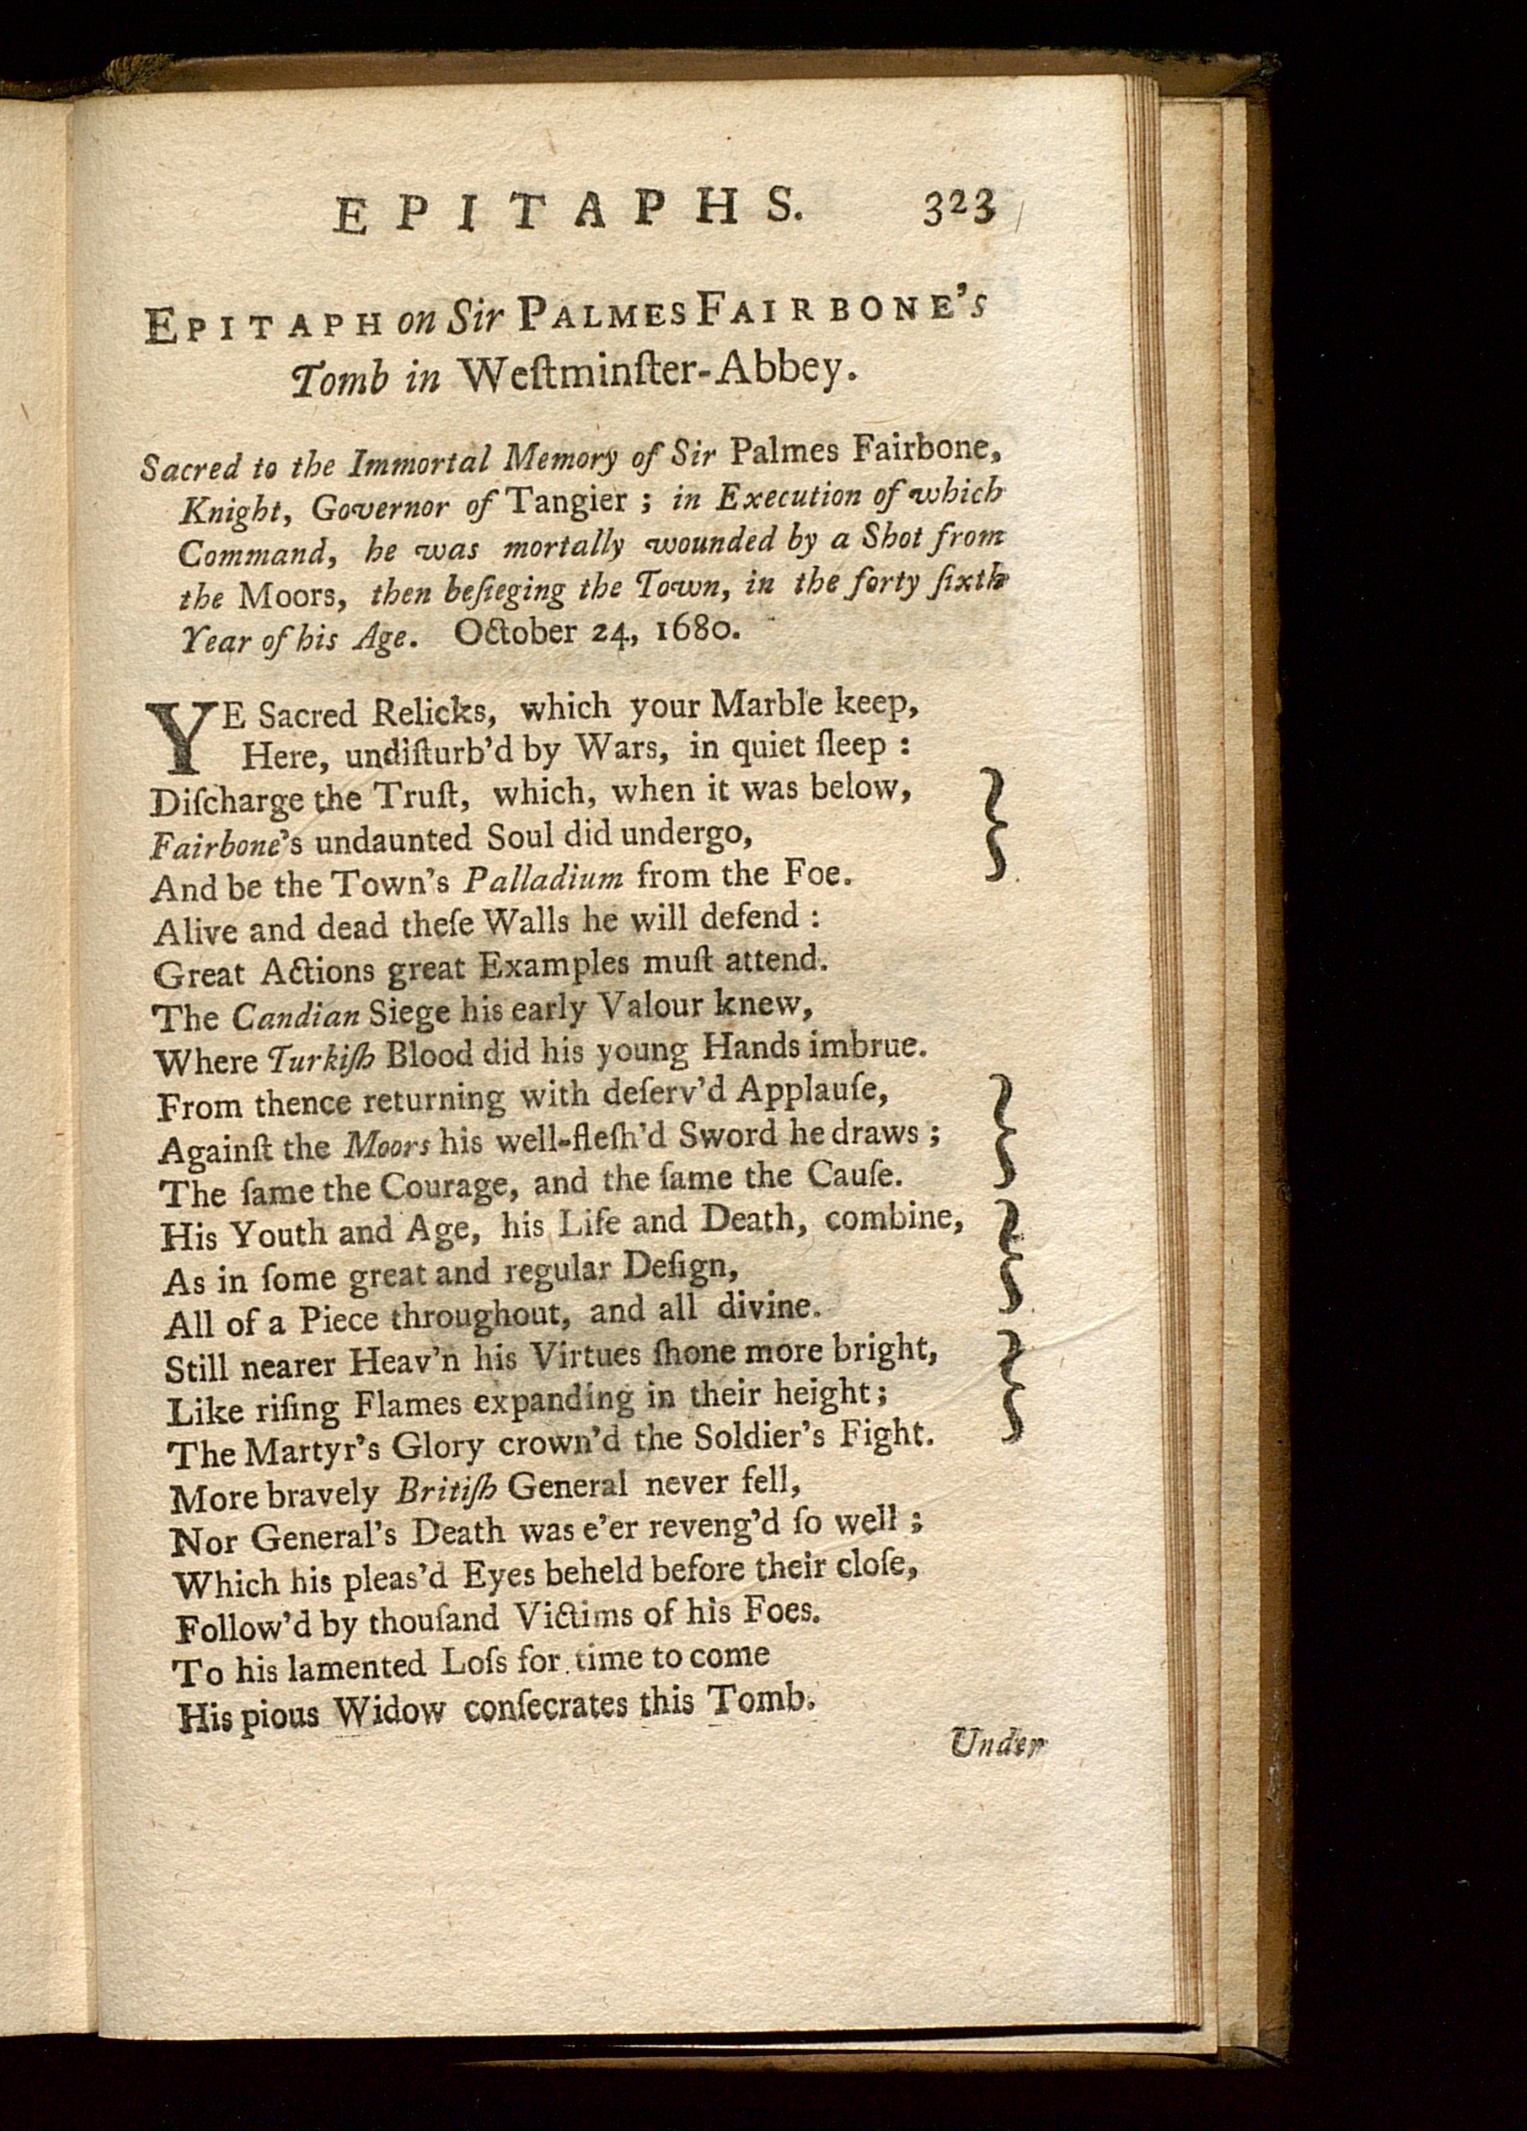 EPITAPHS. 323
EPITAPH on Sir PALMES FAIRBONE's
Tomb in Weſtminſter-Abbey.
Sacred to the Immortal Memory of Sir Palmes Fairbone,
Knight, Governor of Tangier ; in Execution of which
Command, he was mortally wounded by a Shot from
the Moors, then beſieging the Town, in the forty ſixth
Year of his Age. October 24, 1680.
YE Sacred Relicks, which your Marble keep,
Here, undiſturb'd by Wars, in quiet ſleep :
Diſcharge the Truſt, which, when it was below,
Fairbone's undaunted Soul did undergo,
And be the Town's Palladium from the Foe.
Alive and dead theſe Walls he will defend :
Great Actions great Examples muſt attend.
The Candian Siege his early Valour knew,
Where Turkiſh Blood did his young Hands imbrue.
From thence returning with deſerv'd Applauſe,
Againſt the Moors his well-fleſh'd Sword he draws ;
The ſame the Courage, and the ſame the Cauſe.
His Youth and Age, his Life and Death, combine,
As in ſome great and regular Deſign,
All of a Piece throughout, and all divine.
Still nearer Heav'n his Virtues ſhone more bright,
Like riſing Flames expanding in their height ;
The Martyr's Glory crown'd the Soldier's Fight.
More bravely Britiſh General never fell,
Nor General's Death was e'er reveng'd ſo well ;
Which his pleas'd Eyes beheld before their cloſe,
Follow'd by thouſand Victims of his Foes.
To his lamented Loſs for time to come
His pious Widow conſecrates this Tomb.
Under